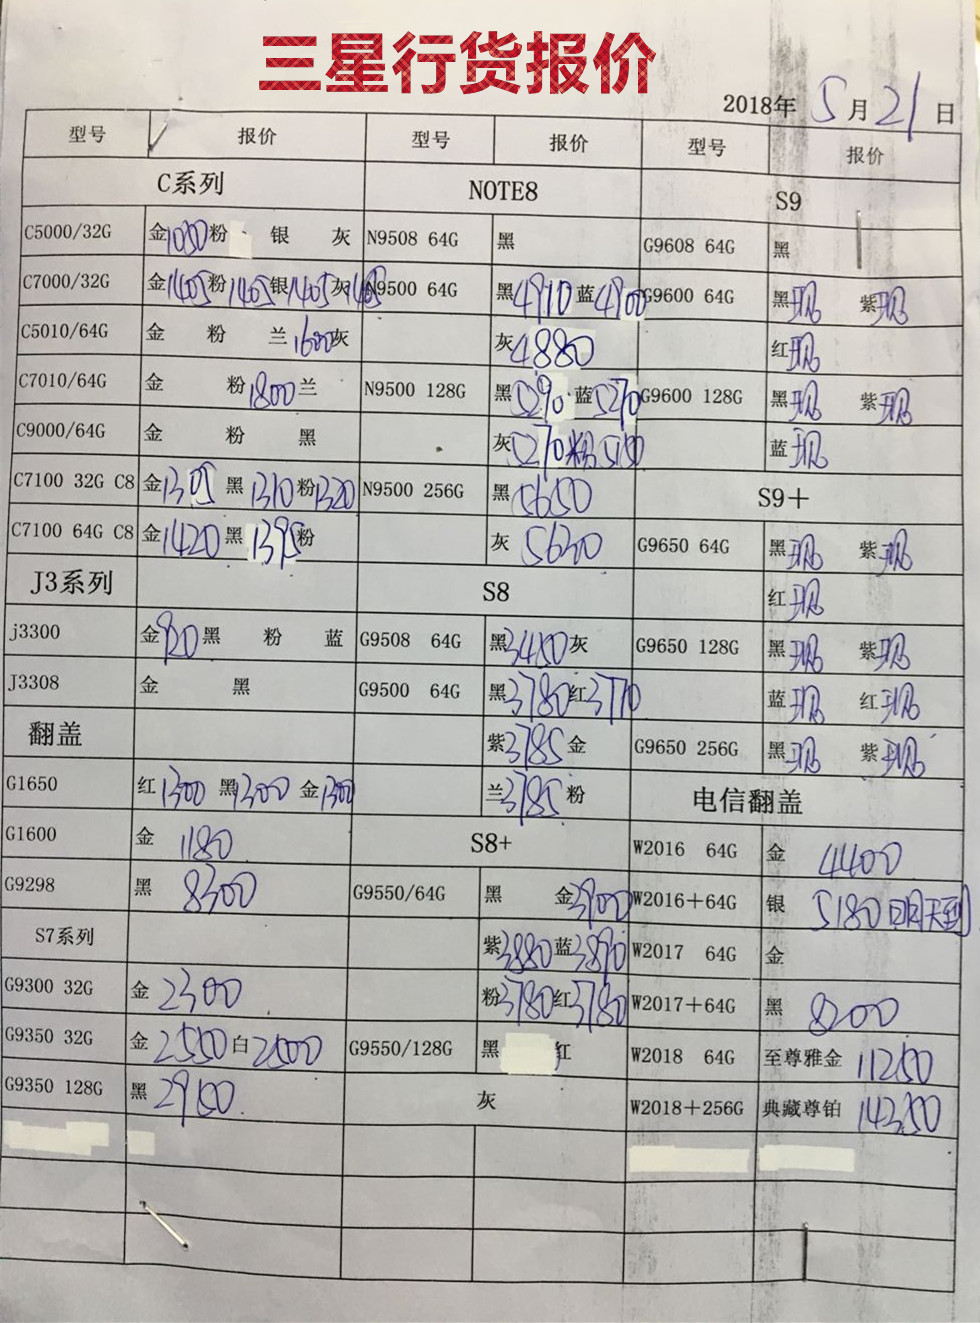 三星行货报价
2018年 5月21日
型号 报价 型号 报价 型号 报价
C系列 NOTE8 S9
C5000/32G 金1030粉 银 灰 N9508 64G 黑 G9608 64G 黑
C7000/32G 金1405粉1405银1405灰1405 N9500 64G 黑4910蓝4900 G9600 64G 黑现 紫现
C5010/64G 金 粉 兰1600灰 灰4880 红现
C7010/64G 金 粉1800兰 N9500 128G 黑5290蓝5270 G9600 128G 黑现 紫现
C9000/64G 金 粉 黑 灰5270粉5150 蓝现
C7100 32G C8 金1305 黑1310粉1320 N9500 256G 黑5650 S9+
C7100 64G C8 金1420黑1395粉 灰5630 G9650 64G 黑现 紫现
J3系列 S8 红现
j3300 金920黑 粉 蓝 G9508 64G 黑3450灰 G9650 128G 黑现 紫现
J3308 金 黑 G9500 64G 黑3780红3770 蓝现 红现
翻盖 紫3785金 G9650 256G 黑现 紫现
G1650 红1300 黑1300 金1300 兰3785粉 电信翻盖
G1600 金 1180 S8+ W2016 64G 金 4400
G9298 黑 8300 G9550/64G 黑 金3900 W2016+64G 银 5180明天到
S7系列 紫3880蓝3890 W2017 64G 金
G9300 32G 金 2300 粉3780红3780 W2017+64G 黑 8200
G9350 32G 金2550白2500 G9550/128G 黑 红 W2018 64G 至尊雅金 11250
G9350 128G 黑2950 灰 W2018+256G 典藏尊铂 14350